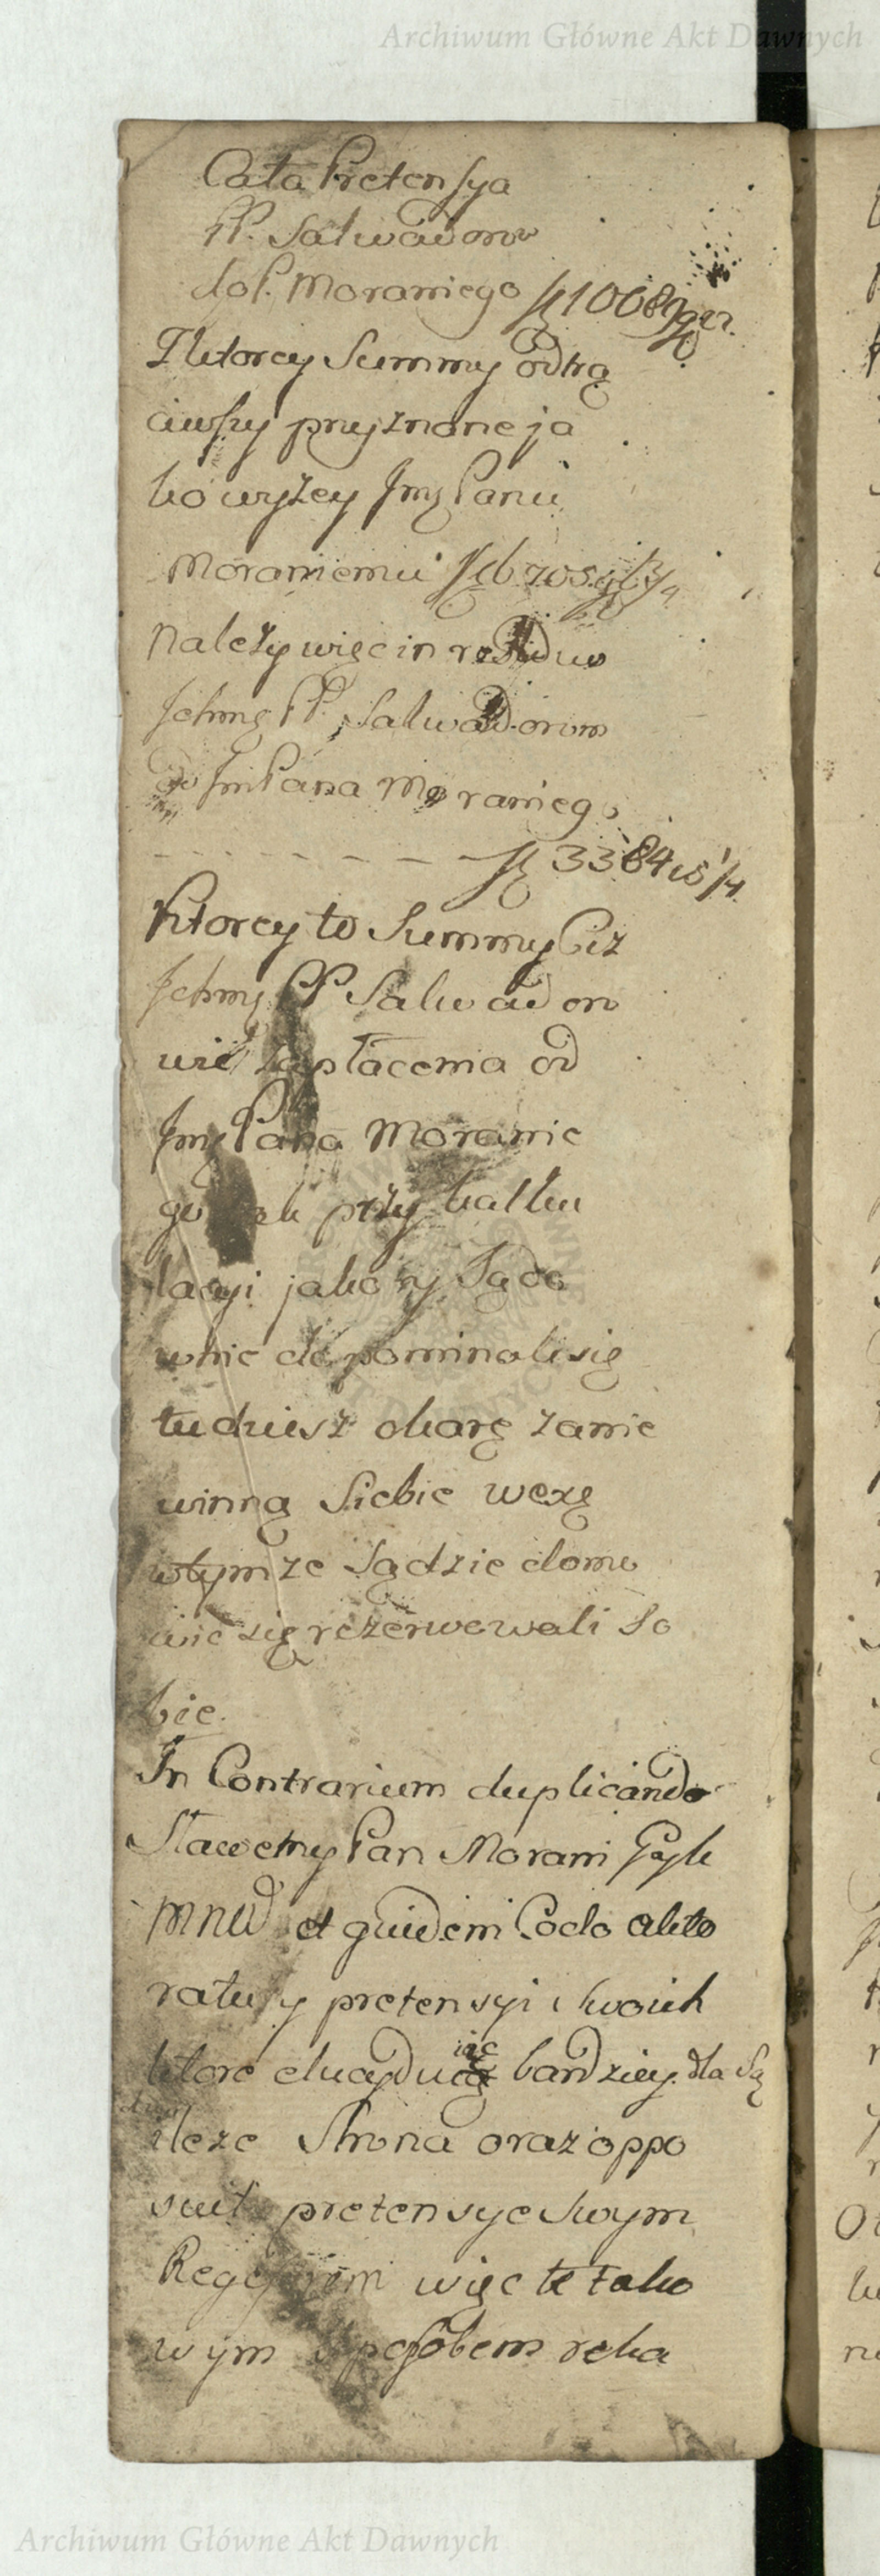 Archiwum Główne Akt Dawnych
Cała Pretensya
PP. Salwadorow
do P. Moraniego
Z ktorey Summy odtrą
ciwszy przyznane ja
ko wyżey Jmę Panu
Moraniemu
Należy więc in residuo
Jchmę PP. Salwadorom
do Jm Pana Moraniego
3384
Ktorey to Summy Ciż
Jchmę PP Salwadoro
wie zapłacenia od
Jmę Pana Moranie
go przy kalku
lacyi jako y Sądo
wnie dopominali się
tudziesz o karę za nie
winną Siebie wexę
w tymże Sądzie domo
wić się rezerwowali So
bie.
In Contrarium duplicando
Sławetny Pan Morani
MNWD et quidem Coelo akto
ratus y pretensyi swoich
ktore iąc bardziey dla Są
du
ileże Strona oraz oppo
suit pretensye swym
Regestrem więc te tako
wym sposobem reka
Archiwum Główne Akt Dawnych